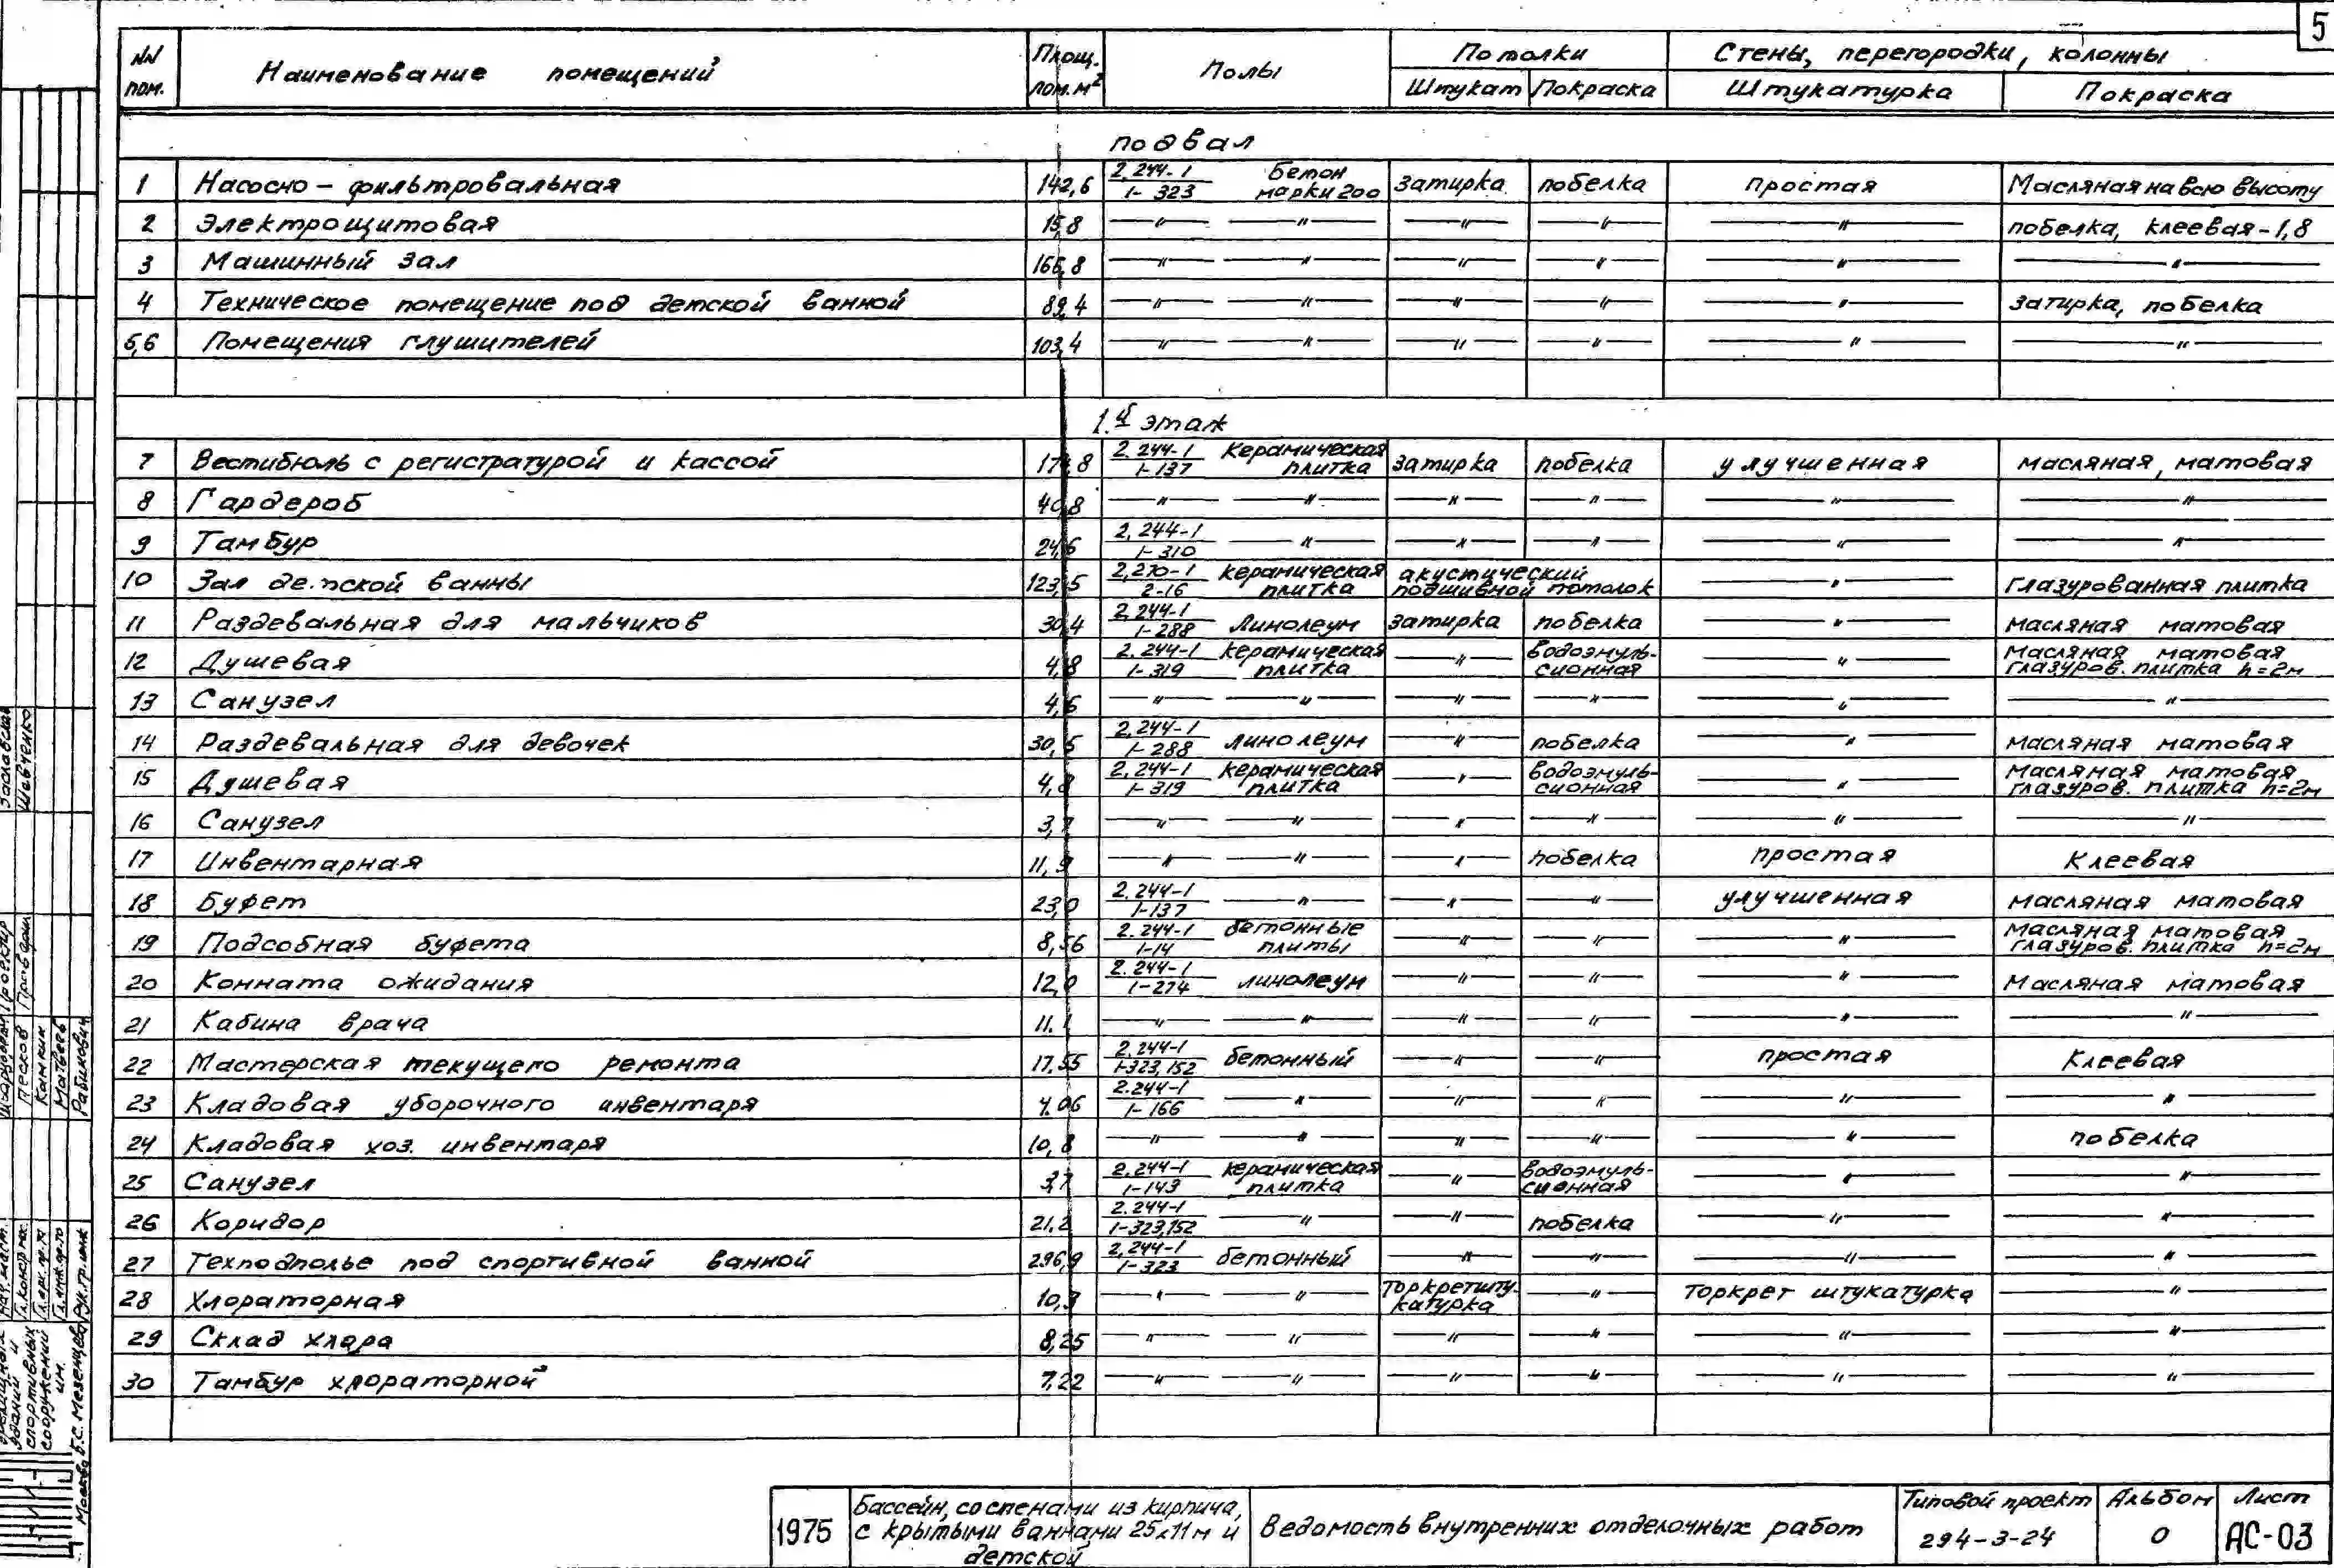 5
NN пом. Наименование помещений Площ. пом. м² Полы Потолки Стены, перегородки, колонны
Штукат Покраска Штукатурка Покраска
подвал
1 Насосно-фильтровальная 142,6 2.244-1/1-323 Бетон марки 200 затирка побелка простая Масляная на всю высоту
2 Электрощитовая 15,8 —"— —"— —"— —"— —"— побелка, клеевая-1,8
3 Машинный зал 166,8 —"— —"— —"— —"— —"— —"—
4 Техническое помещение под детской ванной 89,4 —"— —"— —"— —"— —"— затирка, побелка
5,6 Помещения глушителей 103,4 —"— —"— —"— —"— —"— —"—
1й этаж
7 Вестибюль с регистратурой и кассой 2.244-1/1-137 Керамическая плитка затирка побелка улучшенная масляная, матовая
8 Гардероб 40,8 —"— —"— —"— —"— —"— —"—
9 Тамбур 24,6 2.244-1/1-310 —"— —"— —"— —"— —"—
10 Зал детской ванны 123,5 2.270-1/2-16 керамическая плитка акустический подшивной потолок —"— Глазурованная плитка
11 Раздевальная для мальчиков 30,4 2.244-1/1-288 Линолеум затирка побелка —"— масляная матовая
12 Душевая 4,8 2.244-1/1-319 керамическая плитка —"— водоэмульсионная —"— Масляная матовая глазуров. плитка h=2м
13 Санузел 4,6 —"— —"— —"— —"— —"— —"—
14 Раздевальная для девочек 30,5 2.244-1/1-288 линолеум —"— побелка —"— масляная матовая
15 Душевая 4,8 2.244-1/1-319 керамическая плитка —"— водоэмульсионная —"— Масляная матовая глазуров. плитка h=2м
16 Санузел 3,7 —"— —"— —"— —"— —"— —"—
17 Инвентарная 11,9 —"— —"— —"— побелка простая Клеевая
18 Буфет 23,0 2.244-1/1-137 —"— —"— —"— улучшенная масляная матовая
19 Подсобная буфета 8,56 2.244-1/1-14 бетонные плиты —"— —"— —"— Масляная матовая глазуров. плитка h=2м
20 Комната ожидания 12,0 2.244-1/1-274 линолеум —"— —"— —"— Масляная матовая
21 Кабина врача 11.1 —"— —"— —"— —"— —"— —"—
22 Мастерская текущего ремонта 17.55 2.244-1/1-323,152 бетонный —"— —"— простая Клеевая
23 Кладовая уборочного инвентаря 4.06 2.244-1/1-166 —"— —"— —"— —"— —"—
24 Кладовая хоз. инвентаря 10,8 —"— —"— —"— —"— —"— побелка
25 Санузел 3,7 2.244-1/1-143 керамическая плитка —"— водоэмульсионная —"— —"—
26 Коридор 21,2 2.244-1/1-323,152 —"— —"— побелка —"— —"—
27 Техподполье под спортивной ванной 296,9 2.244-1/1-323 бетонный —"— —"— —"— —"—
28 Хлораторная 10,3 —"— —"— Торкретштукатурка —"— Торкрет штукатурка —"—
29 Склад хлора 8,25 —"— —"— —"— —"— —"— —"—
30 Тамбур хлораторной 7,22 —"— —"— —"— —"— —"— —"—
1975
Бассейн, со стенами из кирпича,
с крытыми ваннами 25х11м и
детской
Ведомость внутренних отделочных работ
Типовой проект
294-3-24
Альбом
0
Лист
АС-03
Заславская
Шевченко
Песков
Камкин
Матвеев
Рабинович
зданий и
спортивных
сооружений
им.
Б.С. Мезенцева
Москва